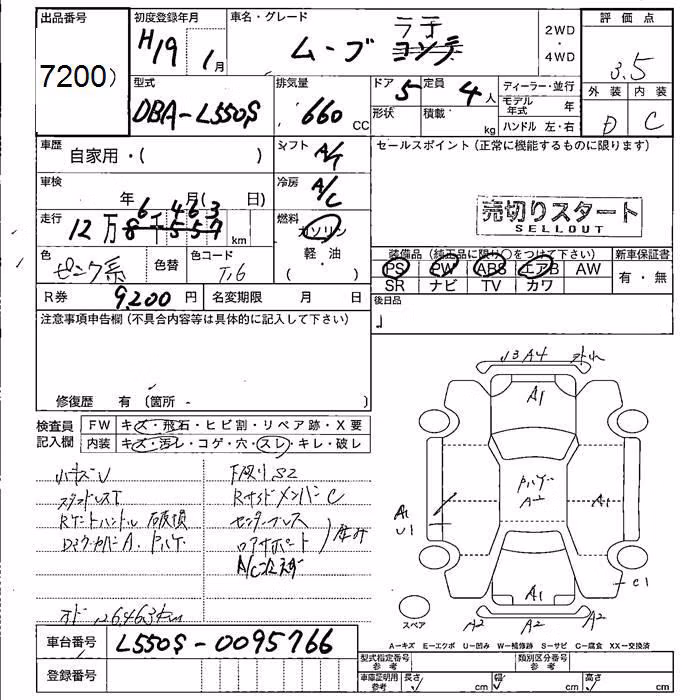 出品番号 7200)
初度登録年月 H19 1月
車名・グレード ムーブ コンテ ラテ
2WD・4WD
評価点 3.5
外装 D 内装 C
型式 DBA-L550S
排気量 660 CC
ドア 5 定員 4人
形状 積載 kg
ディーラー・並行
モデル年式 年
ハンドル 左・右
車歴 自家用・( )
シフト A/T
セールスポイント(正常に機能するものに限ります)
車検 年 月( 日)
冷房 A/C
売切りスタート
SELLOUT
走行 12万 8千557 6 463 km
燃料 ガソリン
軽・油
( )
色 ピンク系 色替 色コード T16
装備品(純正品に限り○をつけて下さい) 新車保証書
PS PW ABS エアB AW 有・無
SR ナビ TV カワ
R券 9,200 円 名変期限 月 日
後日品
注意事項申告欄(不具合内容等は具体的に記入して下さい)
修復歴 有 (箇所 - )
検査員記入欄
FW キズ・飛石・ヒビ割・リペア跡・X要
内装 キズ・汚レ・コゲ・穴・スレ・キレ・破レ
小キズU
スタッドレスT
下廻りS2
RサイドメンバーC
A1
A1
A1
U1
A1
C1
A2 A2 A2
スペア
A=キズ E=エクボ U=凹み W=補修跡 S=サビ C=腐食 XX=交換済
車台番号 L550S-0095766
登録番号
型式指定番号 参考 類別区分番号 参考
車庫証明用 参考 長さ cm 幅 cm 高さ cm